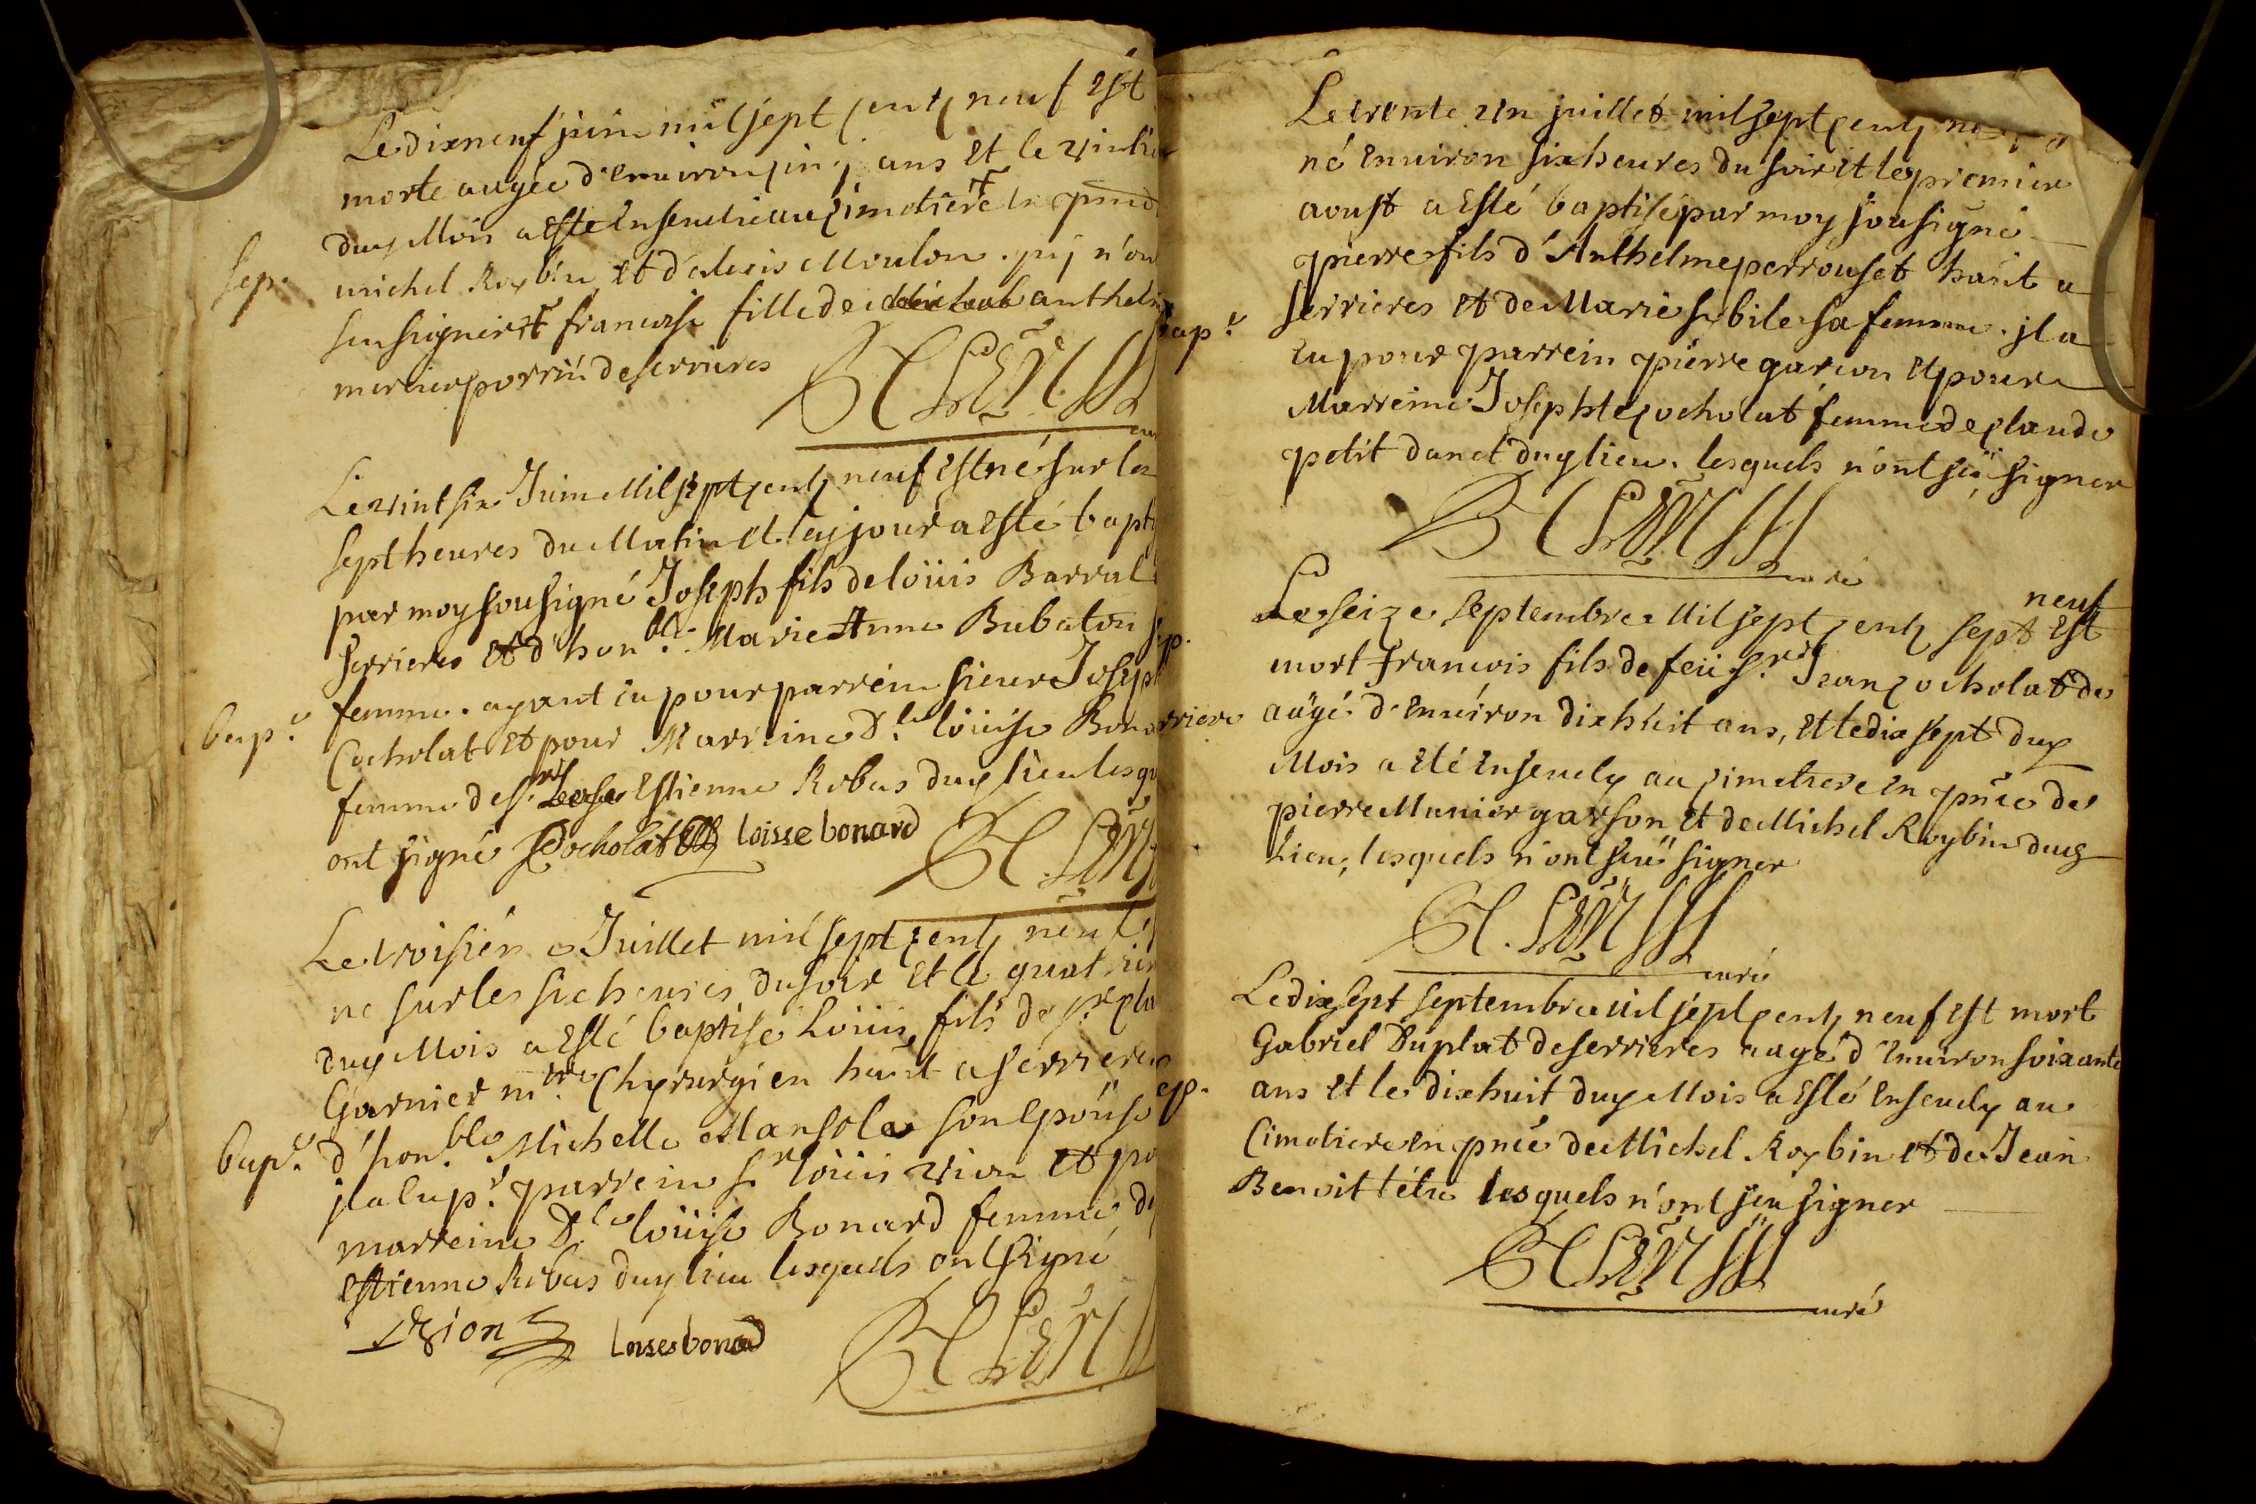 Le dixneuf juin mil sept centz neuf est
morte augée d'environ cinq ans et le vintie
ducy Mois a este ensevelie au cimetiere en pnce
sep.
michel Roybin et d'alexis Moulon. qui n'on
seu signer francoise fille de anthel
mercier porrin de serrieres
Le vint six Juin Mil sept centz neuf est né sur les
sept heures du Matin et le jour a esté bapt
par moy sousigné Joseph fils de loüis Barral
serrieres et d'hon.ble Marie Anne Bubaton
femme. ayant eu pour parrein sieur Joseph
bap.e
Cocholat et pour Marreine D.le loüise Bona
femme de s.r Estienne Robas ducy lieu lesqu
ont signé JCocholat loisse bonard
Le troisiém e Juillet mil sept centz neuf
né sur les sic heures du soir et le quatrie
ducy Mois a esté baptisé Loüis fils de s.r cla
Garnier m.tre Chyrurgien hant a serrieres
bap.e
d'hon.ble Michelle Mansola son epouse
jl a eu p.r parrein s.r loüis vion et po
marreine D.le loüise Bonard femme d
estienne Robas ducy lieu lesquels ont signé
vion loises bonard
Le trente un juillet mil sept centz
né environ six heures du soir et le premier
aoust a esté baptisé par moy sousigné
pierre fils d'Anthelme perrouset hant a
serrieres et de Marie sibile sa femme. jl a
bap.e
eu pour parrein pierre garion et pour
Marreine Josephte cocholat femme de claude
petit danet ducy lieu. lesquels n'ont seü signer
curé
Le seize septembre Mil sept centz sept neuf est
sep.
mort francois fils de feü s.r Jean cocholat de
serriere
augé d'environ dixhuit ans, et le dix sept ducy
Mois a eté ensevely au cimetiere en pnce de
pierre Munier garson et de Michel Roybin ducy
Lieu, lesquels n'ont seü signer
curé
Le dix sept septembre Mil sept centz neuf est mort
Gabriel Duplat de serrieres augé d'environ soixante
ans et le dixhuit ducy Mois a esté ensevely au
sep.
Cimetiere en pnce de Michel Roybin et de Jean
Benoit tétu lesquels n'ont seu signer
curé